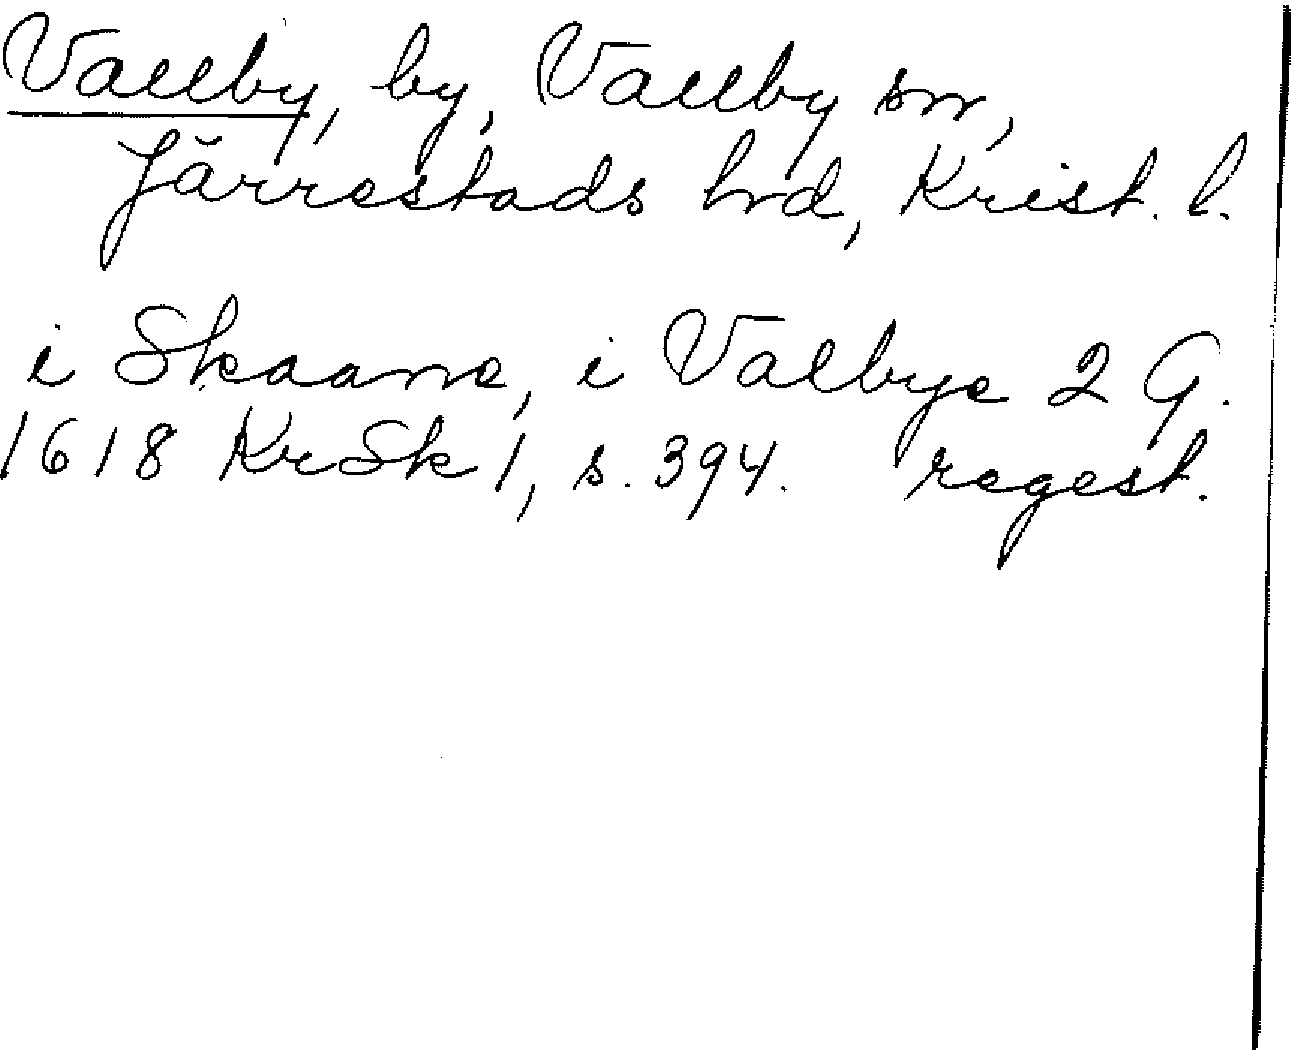 Vallby, by, Vallby sn,
Järrestads hrd, Krist. l.
i Skaane, i Valbye 2 G.
1618 KrSk 1, s. 394. regest.